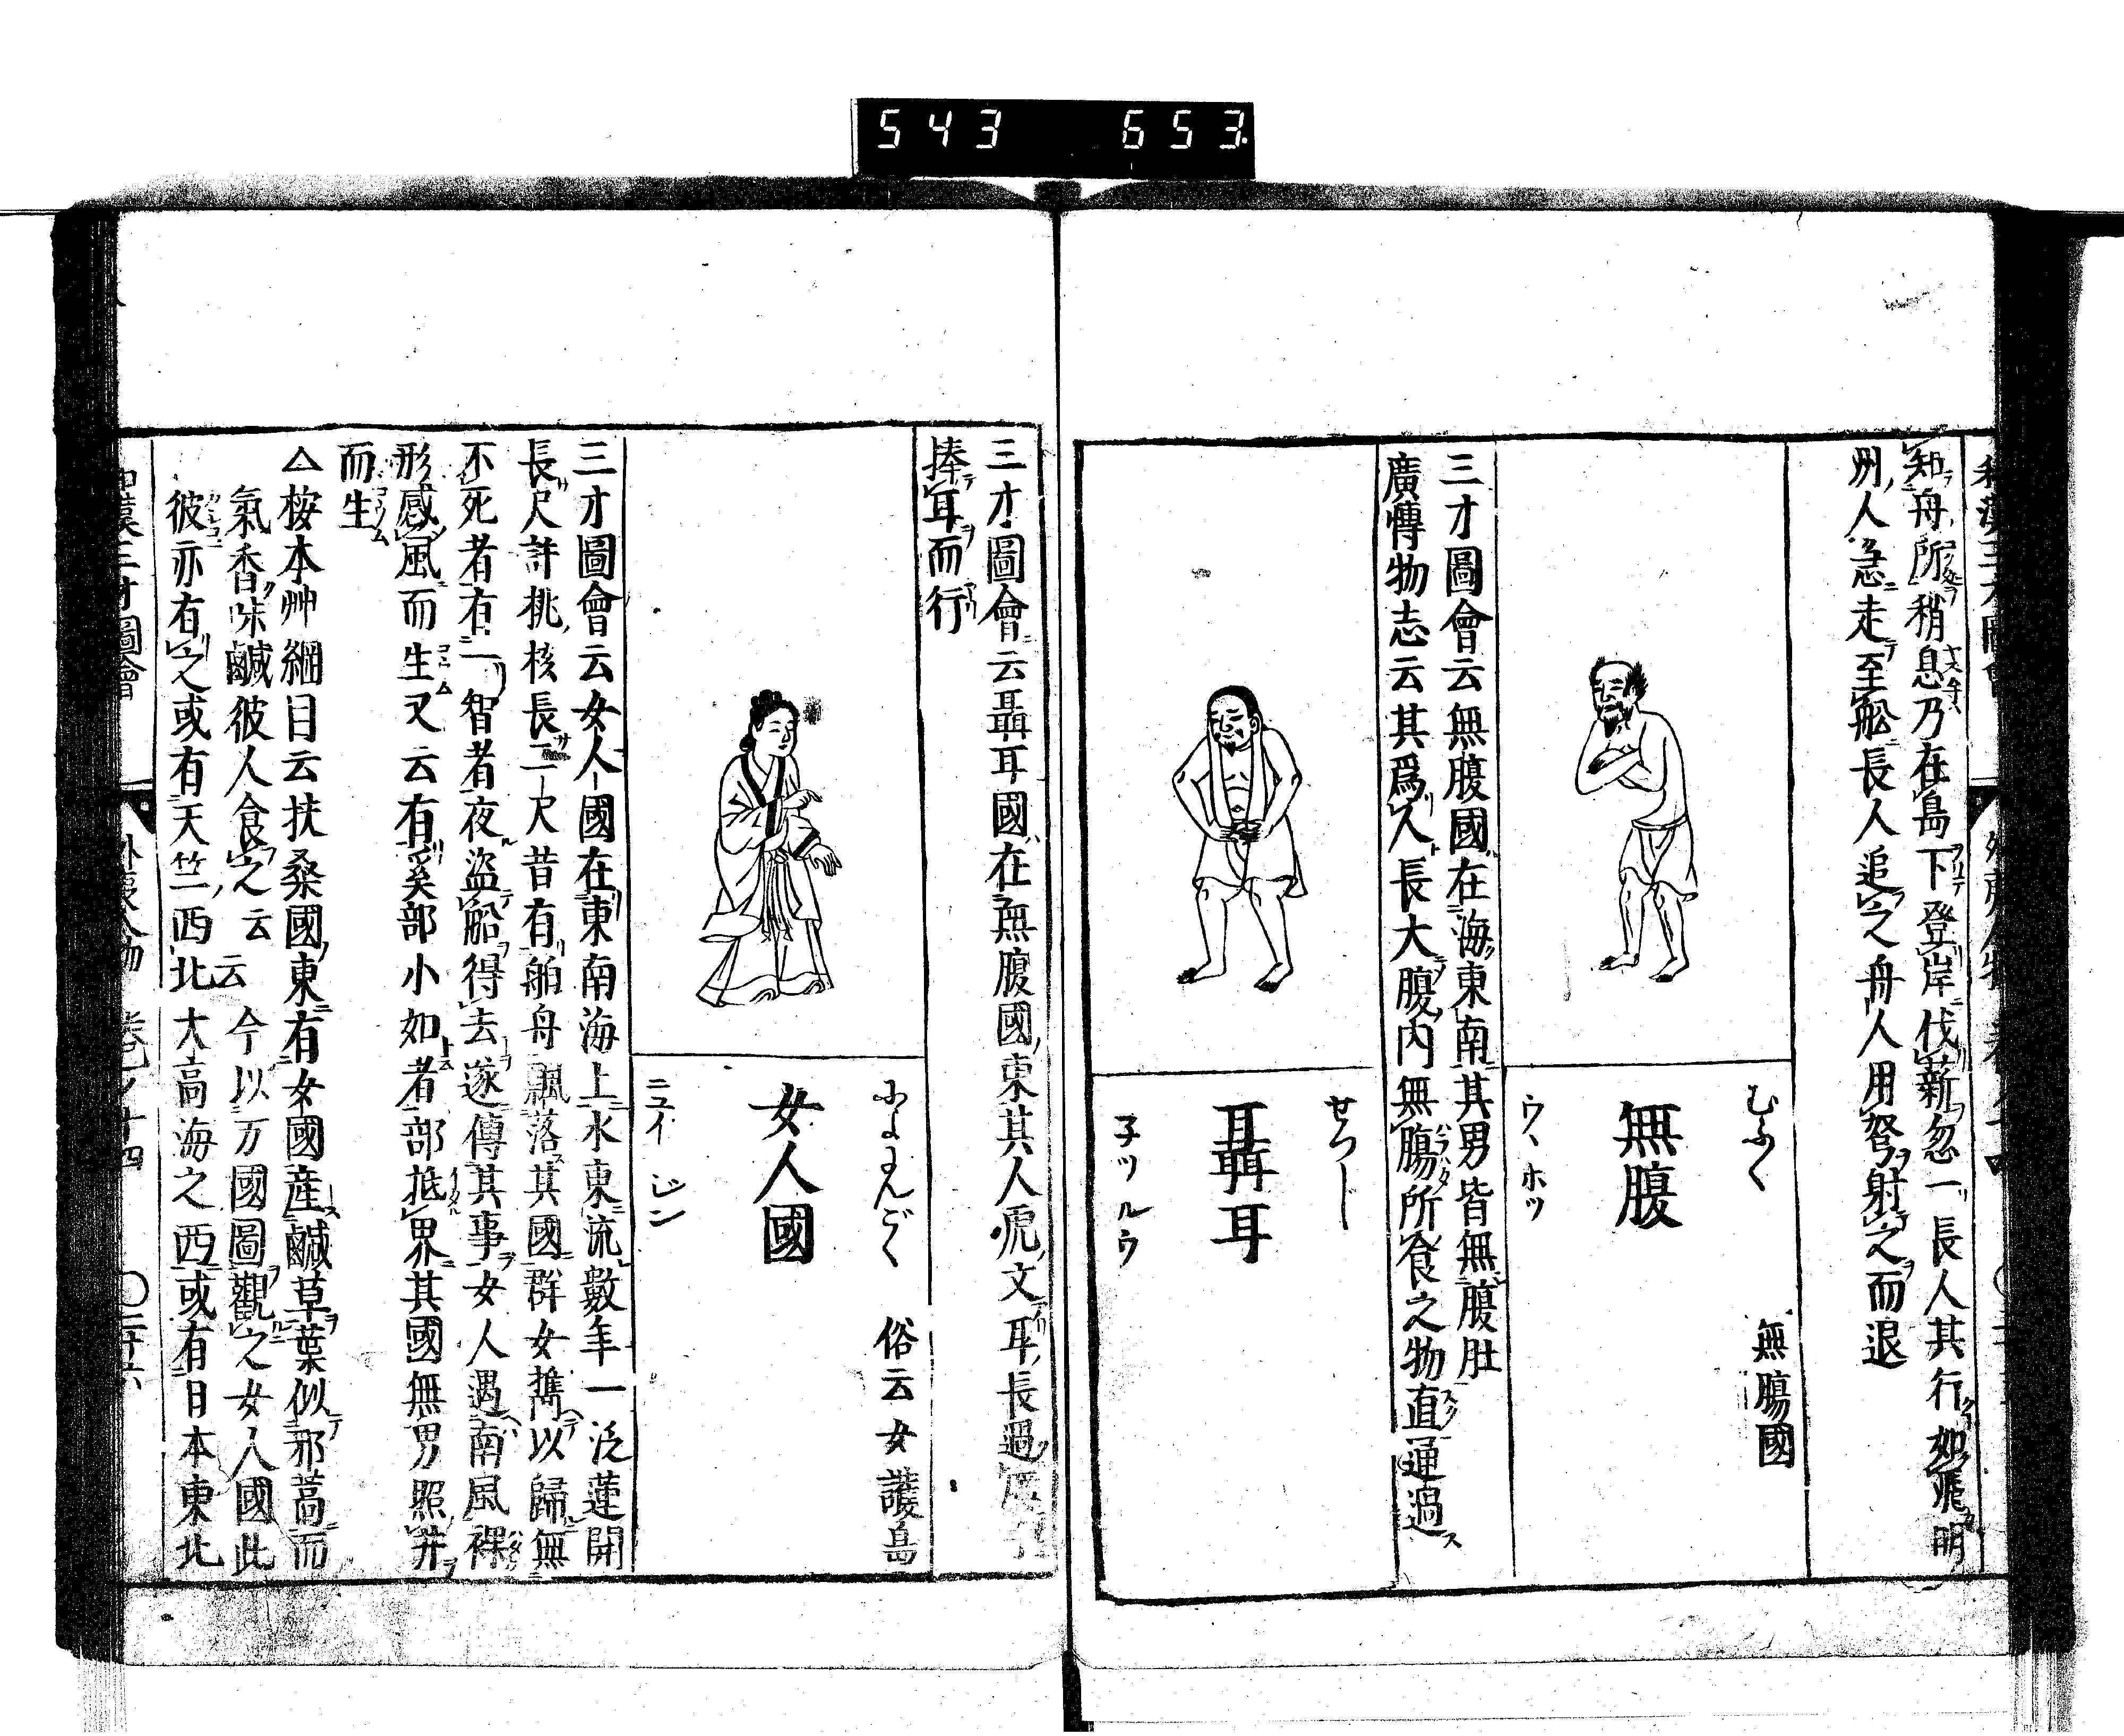 543 653
知舟所稍息乃在島下登岸伐薪忽一長人其行如飛明
州人急走至舩長人追之舟人用弩射之而退
むふく 無腸國
無腹
ウヽ ホツ
三才圖會云無腹國在海東南其男皆無腹肚
廣愽物志云其爲人長大腹内無腸所食之物直通過
せつじ
聶耳
子ツ ルウ
三才圖會云聶耳國在無腹國東其人虎文耳長過
捧耳而行
によにんごく 俗云女護島
女人國
ニユイ ジン
三才圖會云女人國在東南海上水東流數年一泛蓮開
長尺許桃核長二尺昔有舶舟飄落其國群女携以歸無
不死者有一智者夜盜船得去遂傳其事女人遇南風裸
形感風而生又云有奚部小如者部抵界其國無男照井
而生
△桉本艸綱目云扶桑國東有女國産鹹草葉似邪蒿而
氣香味鹹彼人食之云云今以万國圖觀之女人國此
彼亦有之或有天竺西北大高海之西或有日本東北